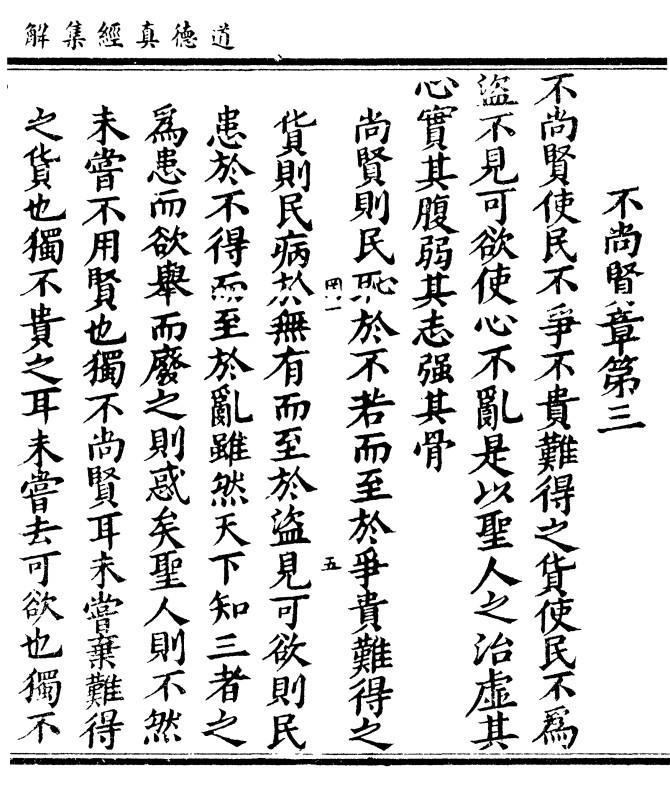 道德真經集解
不尚賢章第三
不尚賢使民不爭不貴難得之貨使民不爲
盜不見可欲使心不亂是以聖人之治虛其
心實其腹弱其志强其骨
尚賢則民恥於不若而至於爭貴難得之
罔一
五
貨則民病於無有而至於盜見可欲則民
患於不得而至於亂雖然天下知三者之
爲患而欲舉而廢之則惑矣聖人則不然
未嘗不用賢也獨不尚賢耳未嘗棄難得
之貨也獨不貴之耳未嘗去可欲也獨不